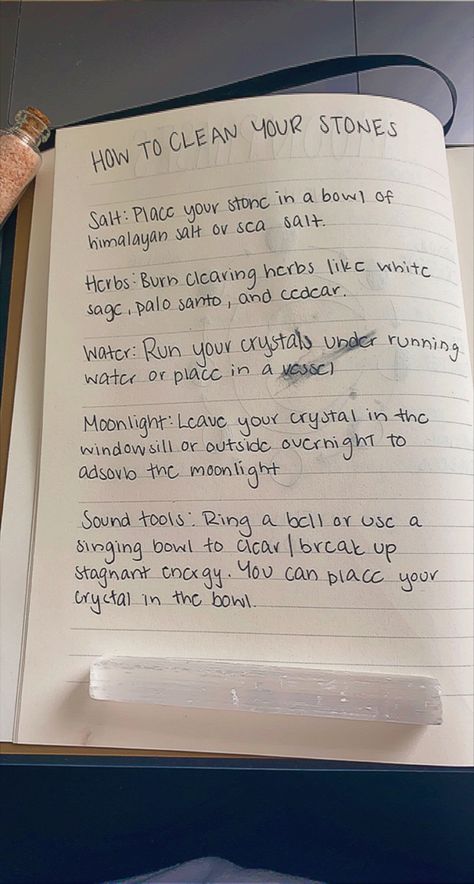 HOW TO CLEAN YOUR STONES
Salt: Place your stone in a bowl of
himalayan salt or sea salt.
Herbs: Burn clearing herbs like white
sage, palo santo, and cedcar.
Water: Run your crystals under running
water or place in a vessel
Moonlight: Leave your crystal in the
windowsill or outside overnight to
adsorb the moonlight
Sound tools: Ring a bell or use a
singing bowl to clear/break up
stagnant energy. You can place your
crystal in the bowl.